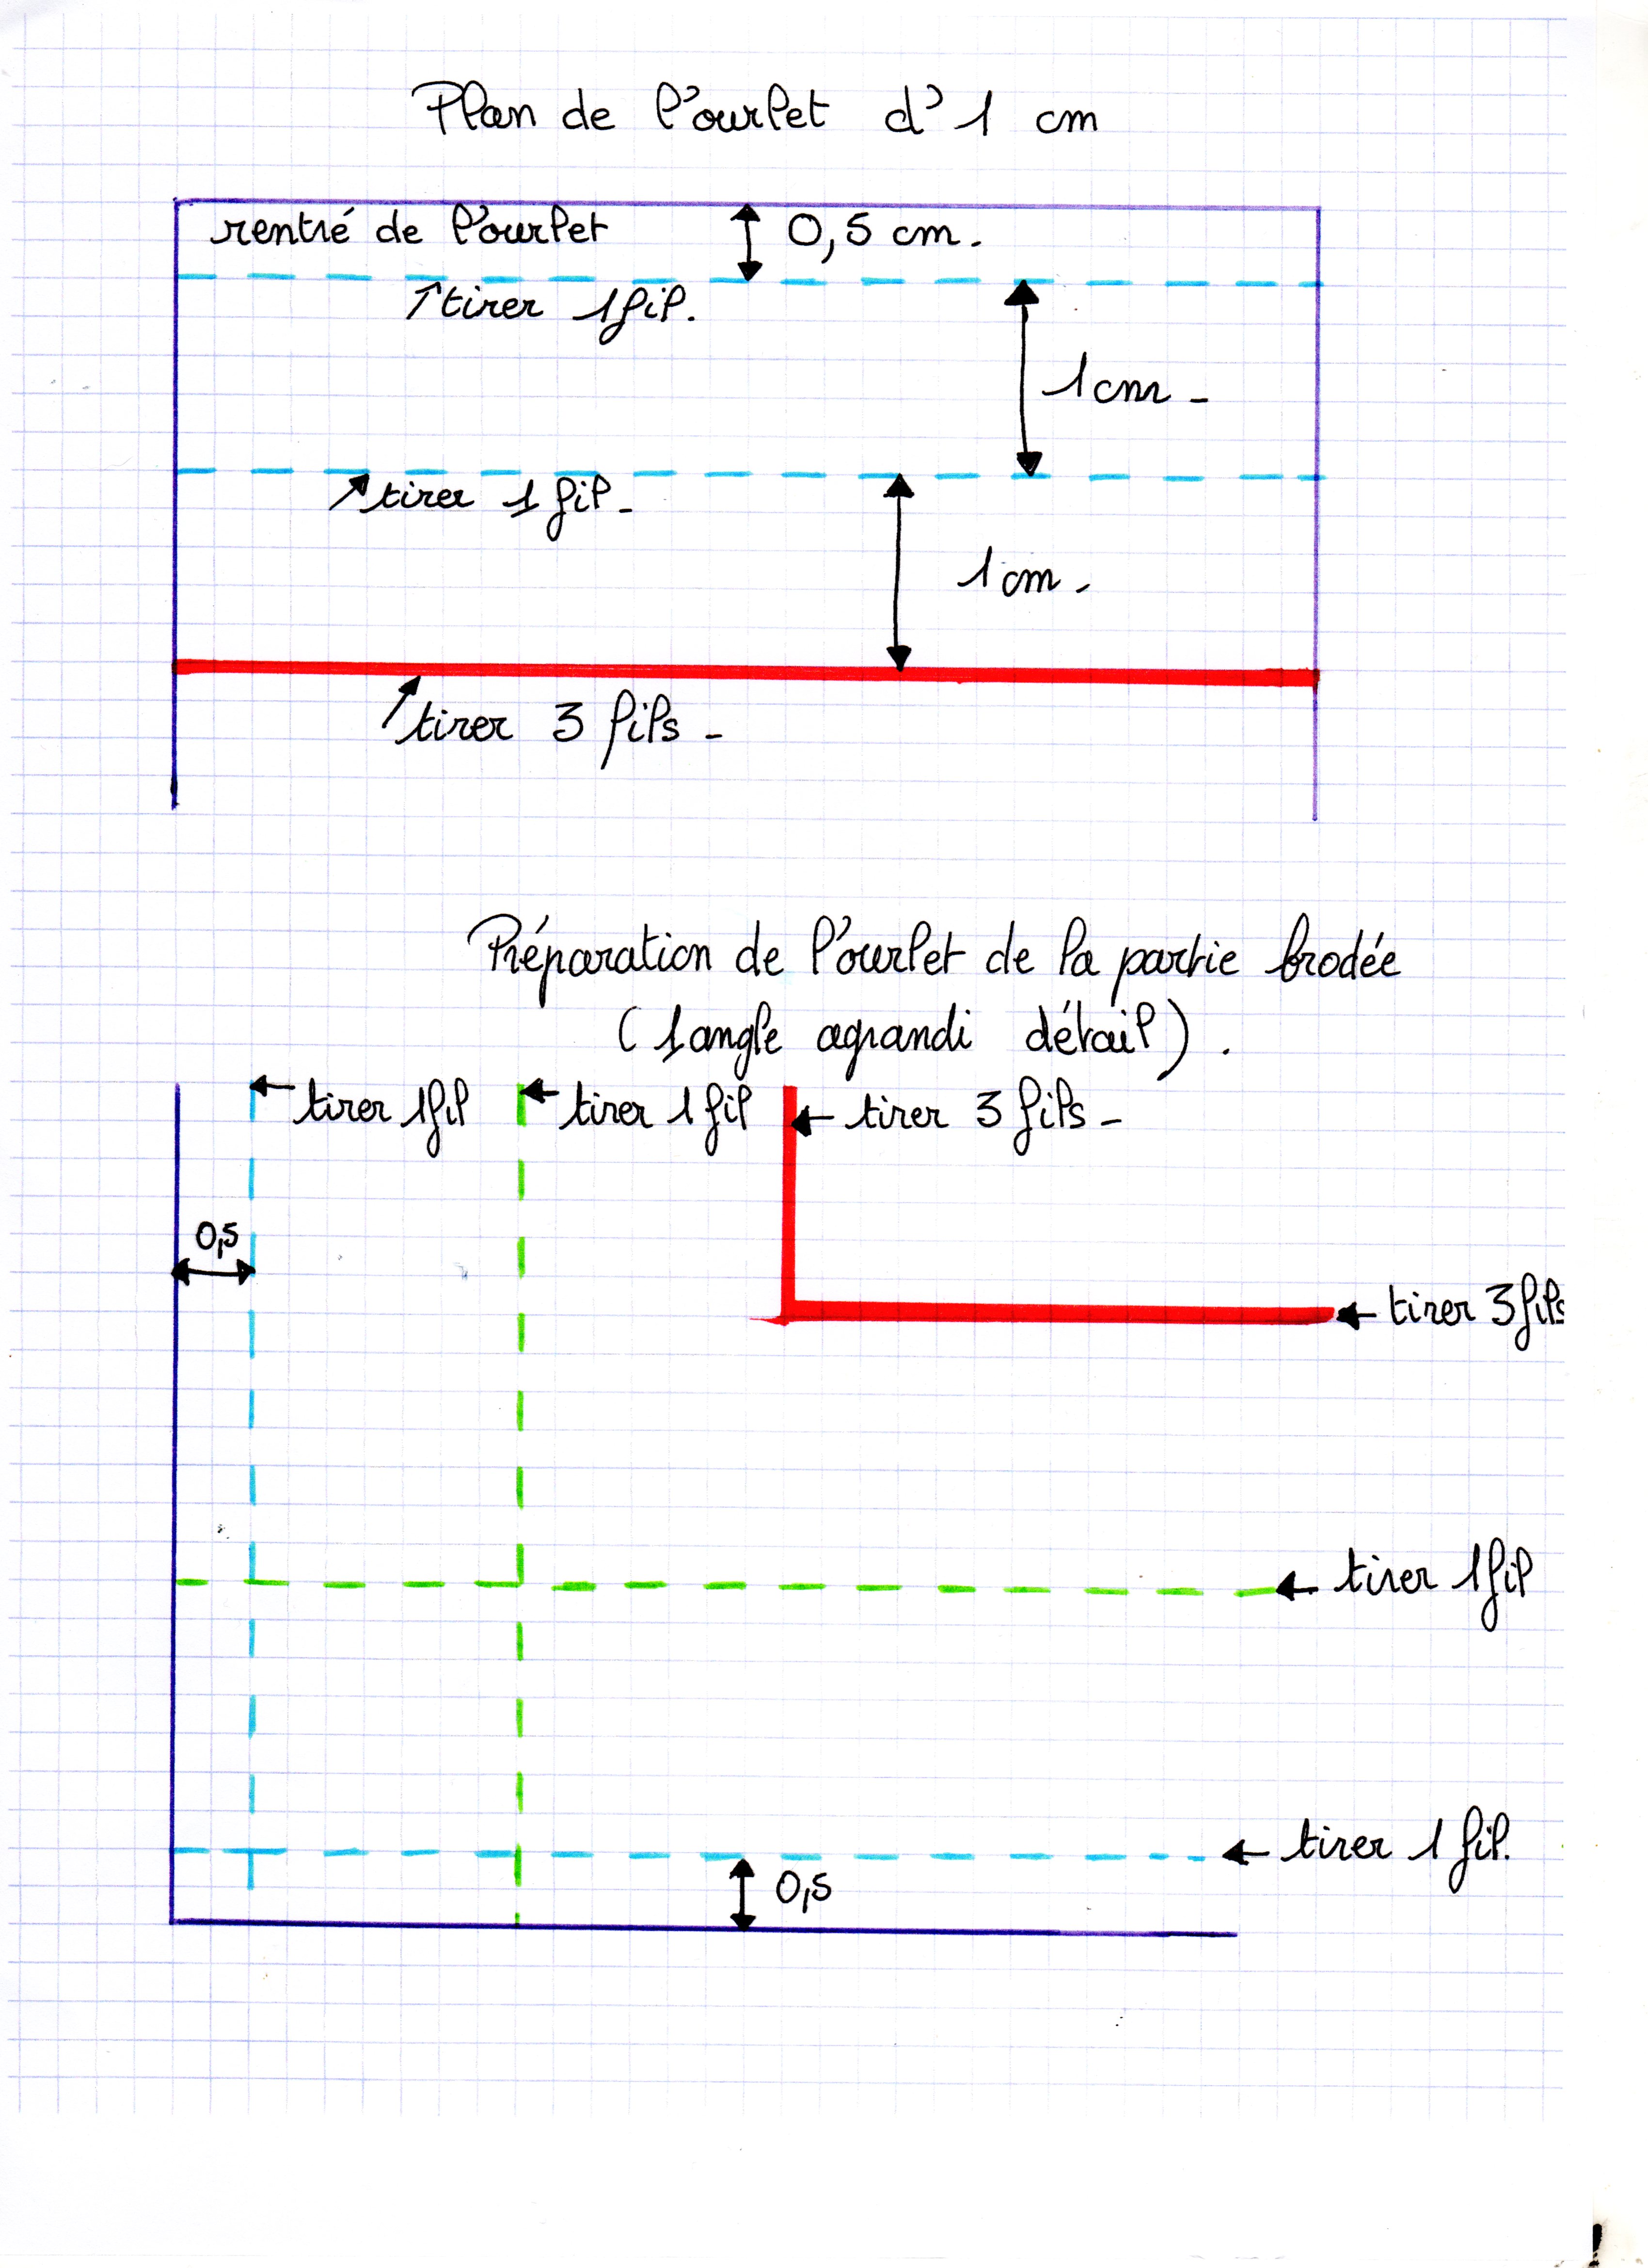 Plan de l'ourlet d'1 cm
rentré de l'ourlet 0,5 cm.
tirer 1 fil.
1 cm -
tirer 1 fil -
1 cm.
tirer 3 fils -
Préparation de l'ourlet de la partie brodée
(1 angle agrandi détail).
tirer 1 fil tirer 1 fil tirer 3 fils -
0,5
tirer 3 fils
tirer 1 fil
tirer 1 fil.
0,5